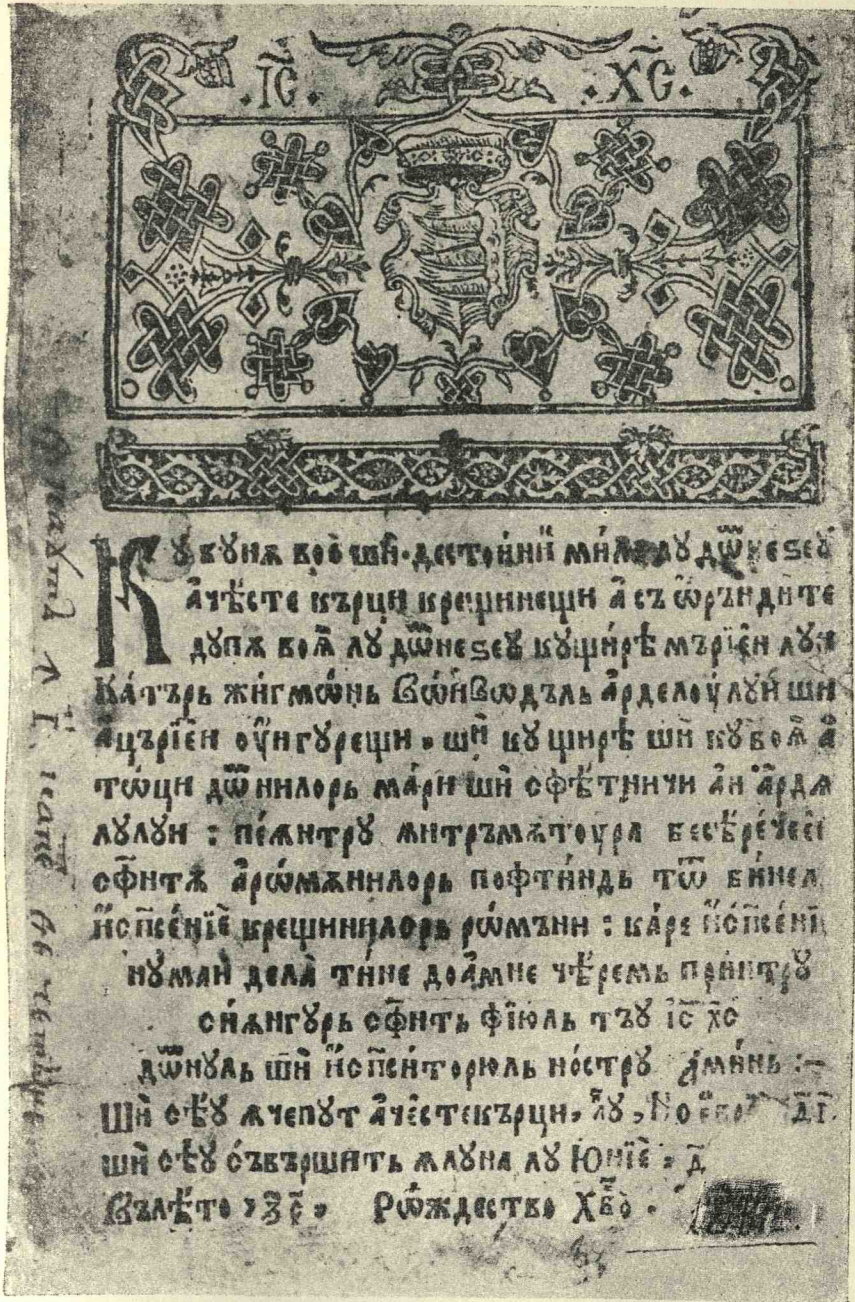 ·І҃С· ·Х҃С·
Кꙋ бꙋнѫ воѐ шѝ · дестоѝнїй мѝлей лꙋ дѡ҃неꙁеꙋ
ачѣсте кърци крещинещи а съ ѡръндите
дꙋпѫ воѧ̀ лꙋ дѡ҃неꙃеꙋ кꙋщѝрѣ мъріеи лꙋи
Ка́търъ жи́гмѡнь Вѡ́иВѡдъль а́рделоулꙋи ши
ацъріеи оу҆нгꙋрещи · шѝ кꙋ щирѣ шѝ кꙋ воѧ̀ а
тѡци дѡ҃нилорь ма́ри шѝ сфѣтничи ан а́рдѧ
лꙋлꙋи : пе́ꙟнтрꙋ ꙟнтръмѫтоура бесѣре́чеєи
сф҃нтѫ арѡмѫнилорь пофти́ндь тѡ҃ би́неле
и҆сп҃се́нїе крещинилорь рѡмъни : ка́ре и҆сп҃се́нїе
нꙋмаѝ дела̀ ти́не доа́мне чѣремь прїинтрꙋ
сиѫнгꙋрь сф҃нть фїюль тъꙋ і҃с х҃с
дѡ҃нꙋль шѝ и҆сп҃ситорюль но́стрꙋ а҆ми́нь :~
Шѝ сѣꙋ ꙟчепꙋт аче́сте кърци, лꙋ, Ноѐвр д҃і.
шѝ сѣꙋ съвършить ꙟлꙋна лꙋ Юнїе · д҃
Вълѣто ҂ꙁ҃с҃ · Рѡ́ждество Хв҃о ·